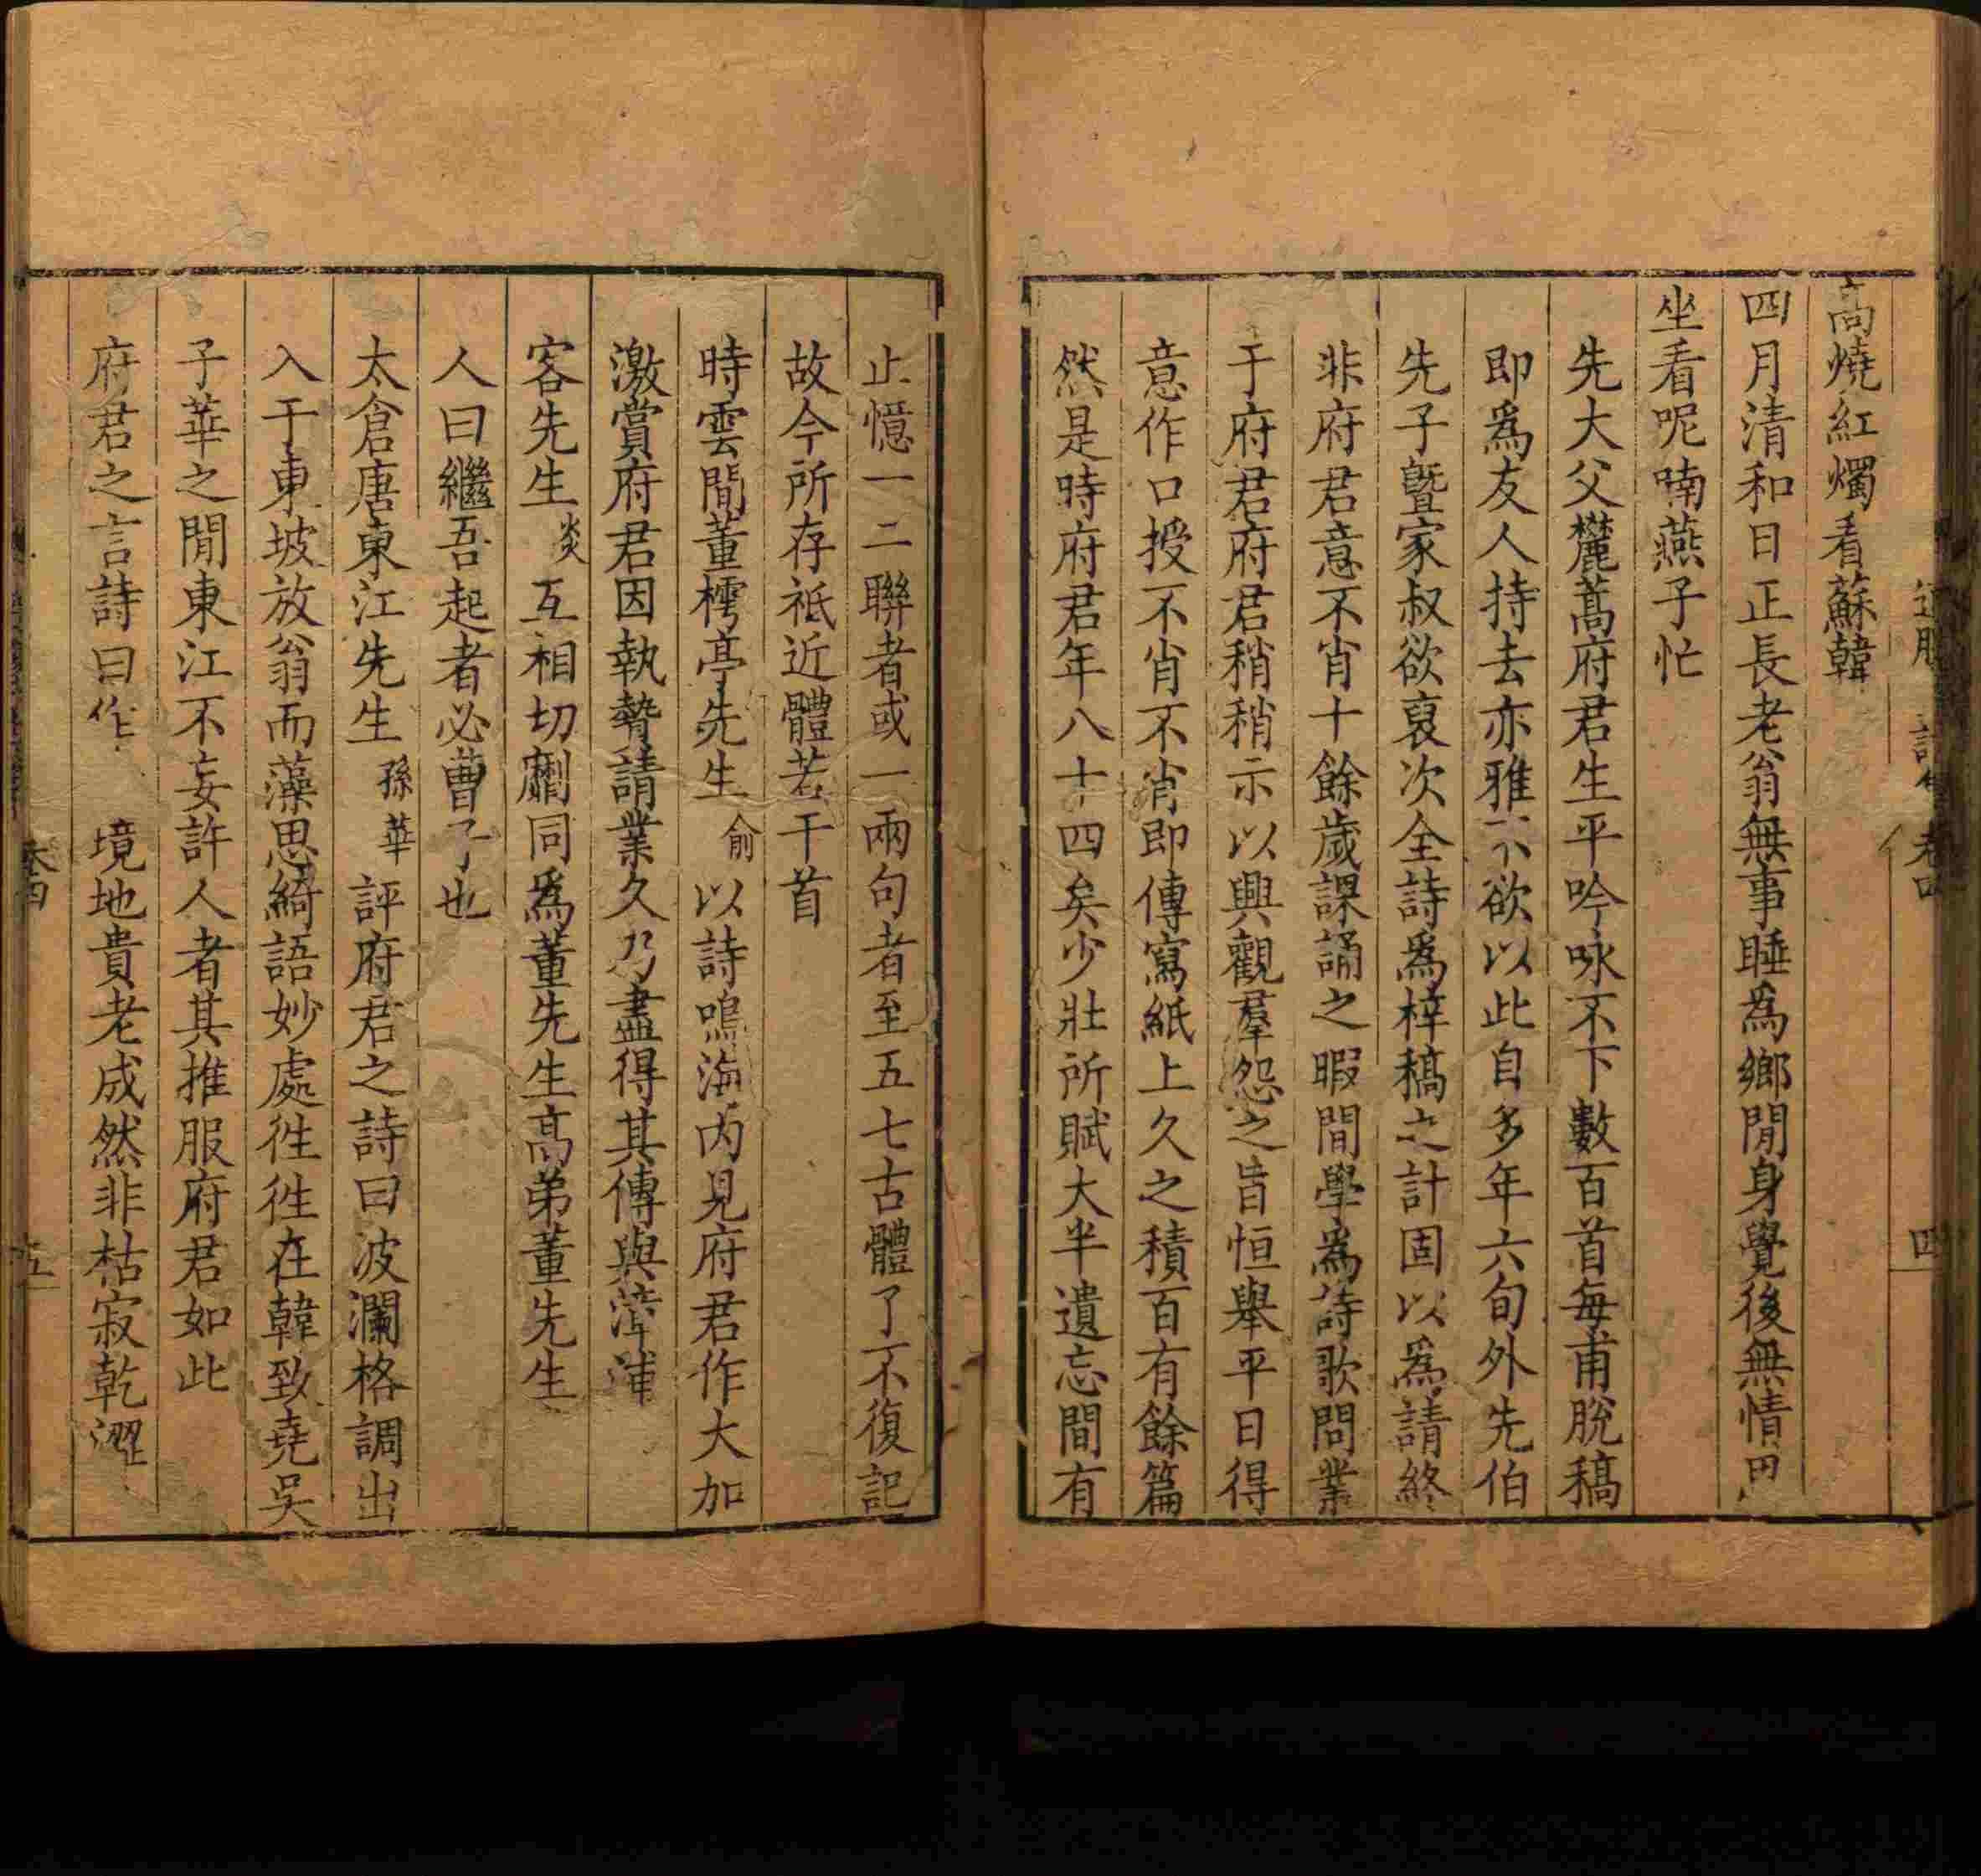 卷四
四
高燒紅燭看蘇韓
四月清和日正長老翁無事睡為鄉閒身覺後無情思
坐看呢喃燕子忙
先大父麓蒿府君生平吟咏不下數百首每甫脫稿
即爲友人持去亦雅不欲以此自多年六旬外先伯
先子曁家叔欲裒次全詩爲梓稿之計固以爲請終
非府君意不肖十餘歲課誦之暇間學爲詩歌問業
于府君府君稍稍示以興觀羣怨之旨恒舉平日得
意作口授不肖不肖即傳寫紙上久之積百有餘篇
然是時府君年八十四矣少壯所賦大半遺忘間有
止憶一二聯者或一兩句者至五七古體了不復記
故今所存祇近體若干首
時雲間董樗亭先生俞以詩鳴海內見府君作大加
激賞府君因執贄請業久乃盡得其傳與漳浦
客先生炎互相切劘同爲董先生高弟董先生
人曰繼吾起者必曹子也
太倉唐東江先生孫華評府君之詩曰波瀾格調出
入于東坡放翁而藻思綺語妙處徃徃在韓致堯吳
子華之閒東江不妄許人者其推服府君如此
府君之言詩曰作境地貴老成然非枯寂乾澀
卷四
五